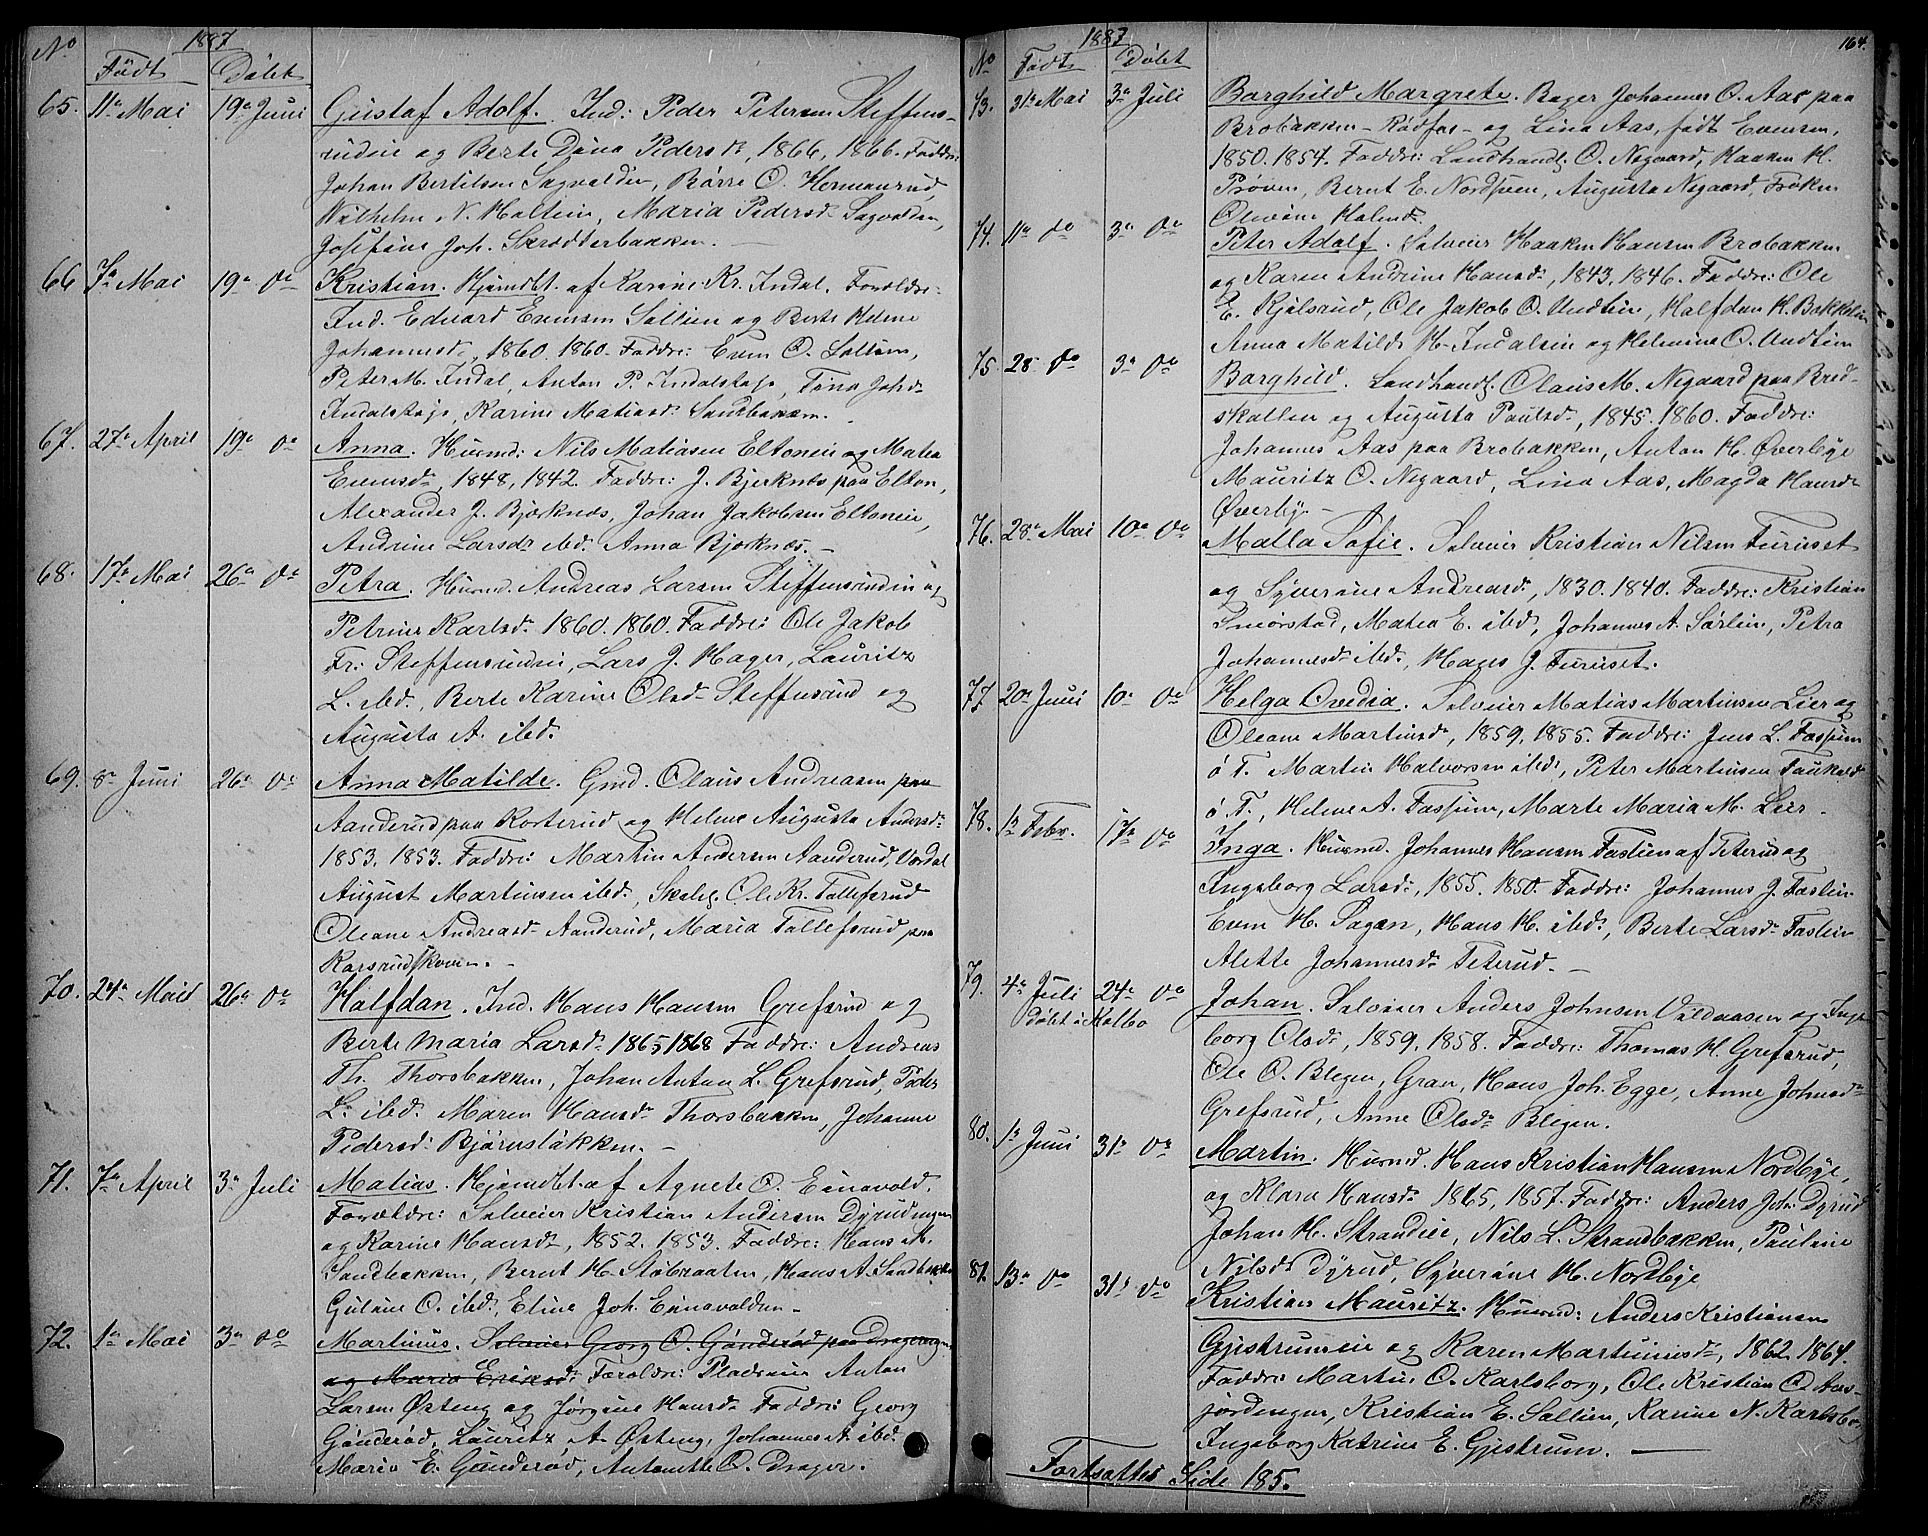 No 1887
Født Døbt
65. 11te Mai 19de Juni Gustaf Adolf. Ind: Peder Petersen Steffens-
rudeie og Berte Dina Pedersdr, 1866, 1866. Faddre:
Johan Bertilsen Sagvolden, Børre O. Hermanrud,
Wilhelm N. Holteie, Maria Pedersdr Sagvolden,
Josefine Joh. Skrædderbakken. —
66 7de Mai 19de do Kristian. Hjemdbt. af Karine Kr. Indal. Forældre:
Ind. Edvard Evensen Sollien og Berte Helene
Johannesdr, 1860. 1860. Faddre: Even O. Sollien,
Peter M. Indal, Anton P. Indalshaje, Tina Johsdr
Indalshaje, Karine Matiasdr Sandbakken.
67. 27de April 19de do Anna. Husmd: Nils Matiasen Eltoneie og Matea
Evensdr, 1848, 1842. Faddre: J. Bjerknæs paa Elton,
Alexander J. Bjerknæs, Johan Jakobsen Eltoneie,
Andrine Larsdr ibd. Anna Bjerknæs. —
68. 17de Mai 26de do Petra. Husmd. Andreas Larsen Steffensrudeie og
Petrine Karlsdr 1860. 1860. Faddre: Ole Jakob
Fr: Steffensrudeie, Lars J. Hager, Lauritz
L. ibd, Berte Karine Olsdr Steffensrud og
Augusta A. ibd.
69. 8de Juni 26de do Anna Matilde. Gmd. Olaus Andreasen paa
Aanderud paa Korterud og Helene Augusta Andersdr
1853, 1853. Faddre: Martin Andersen Aanderud, Vardal
August Martinsen ibd, Skoleg. Ole Kr. Tollefsrud
Oleane Andreasdr Aanderud, Maria Tollefsrud paa
Karsrudskoven. —
70. 24de Mai 26de do Halfdan. Ind. Hans Hansen Grefsrud og
Berte Maria Larsdr 1865 1868 Faddre: Andreas
Th. Thorsbakken, Johan Anton L. Grefsrud, Peder
L. ibd. Maren Hansdr Thorsbakken, Johanne
Pedersdr Bjørnsløkken. —
71. 7de April 3de Juli Matias. Hjemdbt. af Agnete O. Einavold.
Forældre: Selveier Kristian Andersen Dyrudengen
og Karine Hansdr, 1852. 1853. Faddre: Hans A.
Sandbakken, Bernt H. Støbraaten, Hans A. Sandbakken
Guline O. ibd, Eline Joh. Einavolden —
72. 1de Mai 3de do Martinus. Selveier Georg O. Gaarderød paa Dragerengen
og Maria Eriksdr Forældre: Pladseeie Anton
Larsen Østeng og Jørgine Hansdr Faddre: Georg
Gaarderød, Lauritz A. Østeng, Johannes A. ibd.
Maria E. Gaarderød, Antonette O. Drager.
No 1887 164.
Født Døbt
73. 31te Mai 3de Juli Borghild Margrete. Bager Johannes O. Aas paa
Brobakken - Rødfos - og Lina Aas, født Evensen,
1850. 1854. Faddre: Landhandl. O. Nøgaard, Haaken H.
Prøven, Bernt E. Nordsveen, Augusta Nøgaard, Frøken
Olevine Holmdr
74. 11te do 3de do Peter Adolf. Selveier Haaken Hansen Brobakken
og Karen Andrine Hansdr, 1843, 1846. Faddre: Ole
E. Kjølsrud, Ole Jakob O. Undlien, Halfdan H. Bakkelien
Anna Matilde H. Indalseie og Helmine O. Undlien
75. 28 do 3de do Borghild. Landhandl. Olaus M. Nøgaard paa Bred-
skallen og Augusta Paulsdr, 1845. 1860. Faddre:
Johannes Aas paa Brobakken, Anton H. Øverbye
Mauritz O. Nøgaard, Lina Aas, Magda Hansdr
Øverbye —
76. 28de Mai 10de do Malla Sofie. Selveier Kristian Nilsen Furuset
og Syverine Andreasdr, 1830. 1840. Faddre: Kristian
Smørstad, Matea E. ibd, Johannes A. Sørlien, Petra
Johannesdr ibd., Hans J. Furuset.
77 20de Juni 10de do Helga Ovedia. Selveier Matias Martinsen Lier og
Oleane Martinsdr, 1859, 1855. Faddre: Jens L. Fossum
ø T. Martin Halvorsen ibd, Peter Martinsen Faukald
ø T., Helene A. Fossum, Marte Maria M. Lier.
78. 1de Febr. 17de do Inga. Husmd. Johannes Hansen Faslien af Teterud og
Ingeborg Larsdr, 1855. 1850. Faddre: Johannes J. Faslien
Even H. Sogan, Hans H. ibd, Berte Larsdr Faslien
Alette Johannesdr Teterud. —
79. 4de Juli 24de do Johan. Selveier Anders Johnsen Vildaasen og Inge-
døbt i Kolbo borg Olsdr, 1859, 1858. Faddre: Thomas H. Grefsrud,
Ole O. Blegen, Gran, Hans Joh. Egge, Anne Johnsdr
Grefsrud, Anne Olsdr Blegen.
80. 1de Juni 31te do Martin. Husmd. Hans Kristian Hansen Nordbye,
og Klara Hansdr 1865, 1857. Faddre: Anders Joh. Dyrud
Johan H. Strandeie, Nils L. Strandbakken, Pauline
Nilsdr Dyrud, Syverine H. Nordbye
81. 13de do 31te do Kristian Mauritz. Husmd: Anders Kristiansen
Gjestrumeie og Karen Martinusdr, 1862 1864.
Faddre: Martin O. Karlsborg, Ole Kristian O. Aas-
jordengen, Kristian E. Sollien, Karine N. Karlsborg
Ingeborg Katrine E. Gjestrum. —
Fortsættes Side 185.